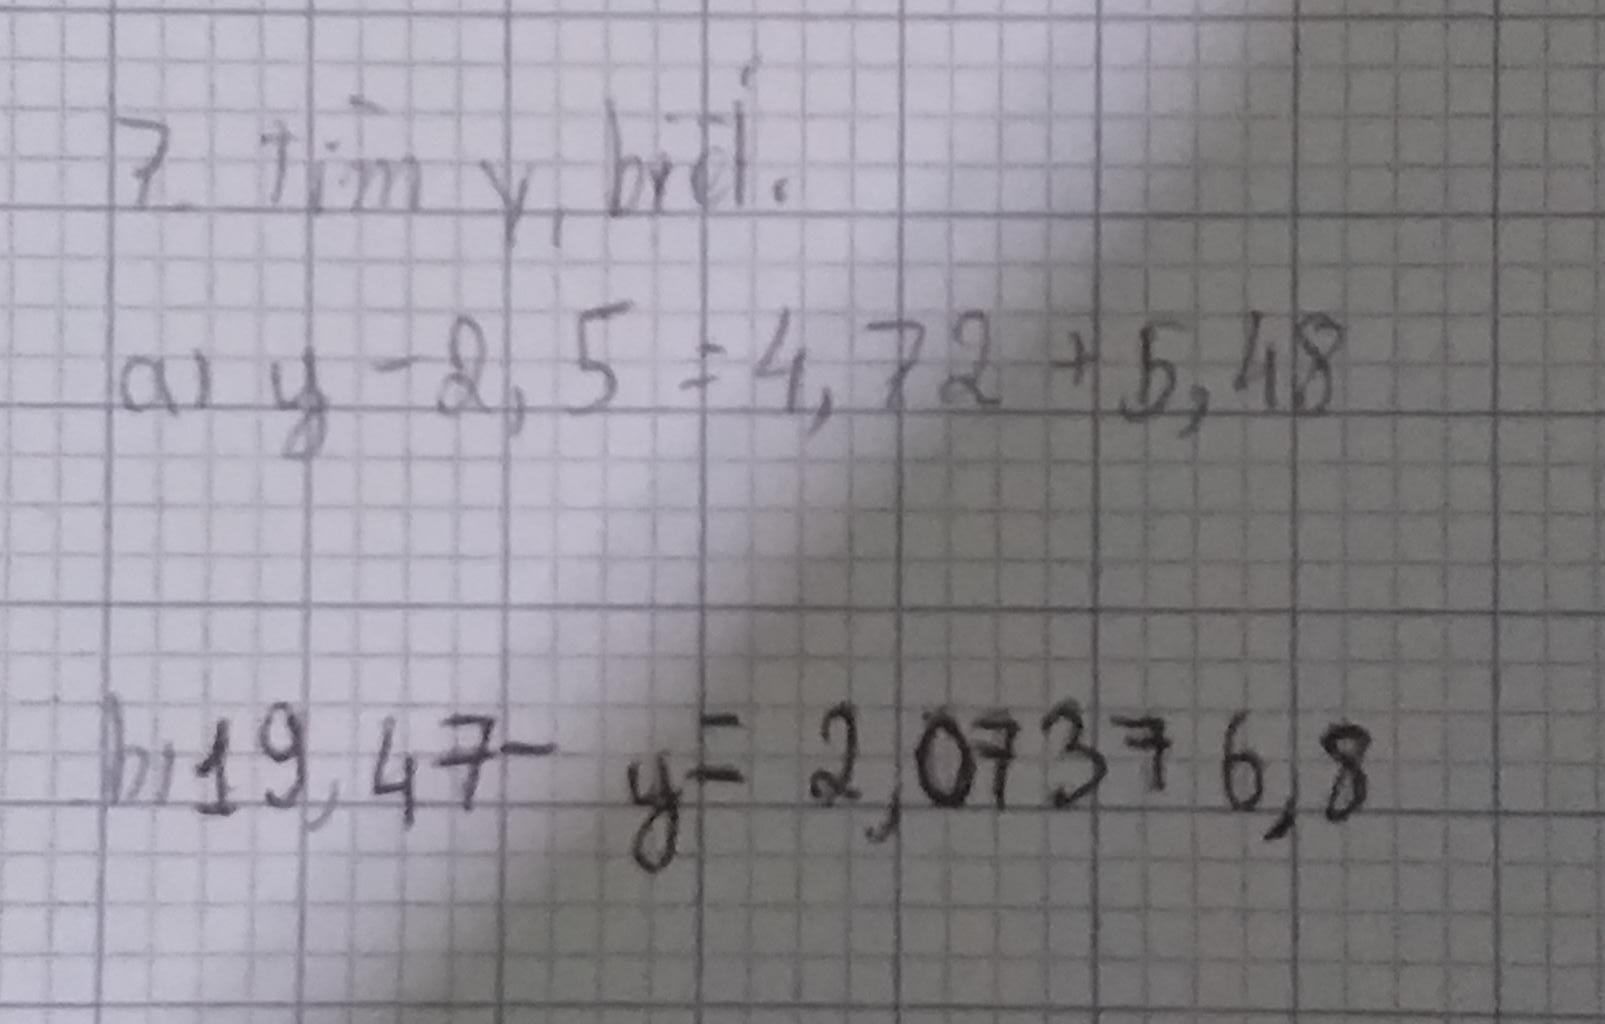 7 Tìm y, biết.
a) y - 2,5 = 4,72 + 5,48
b) 19,47 - y = 2,07376,8